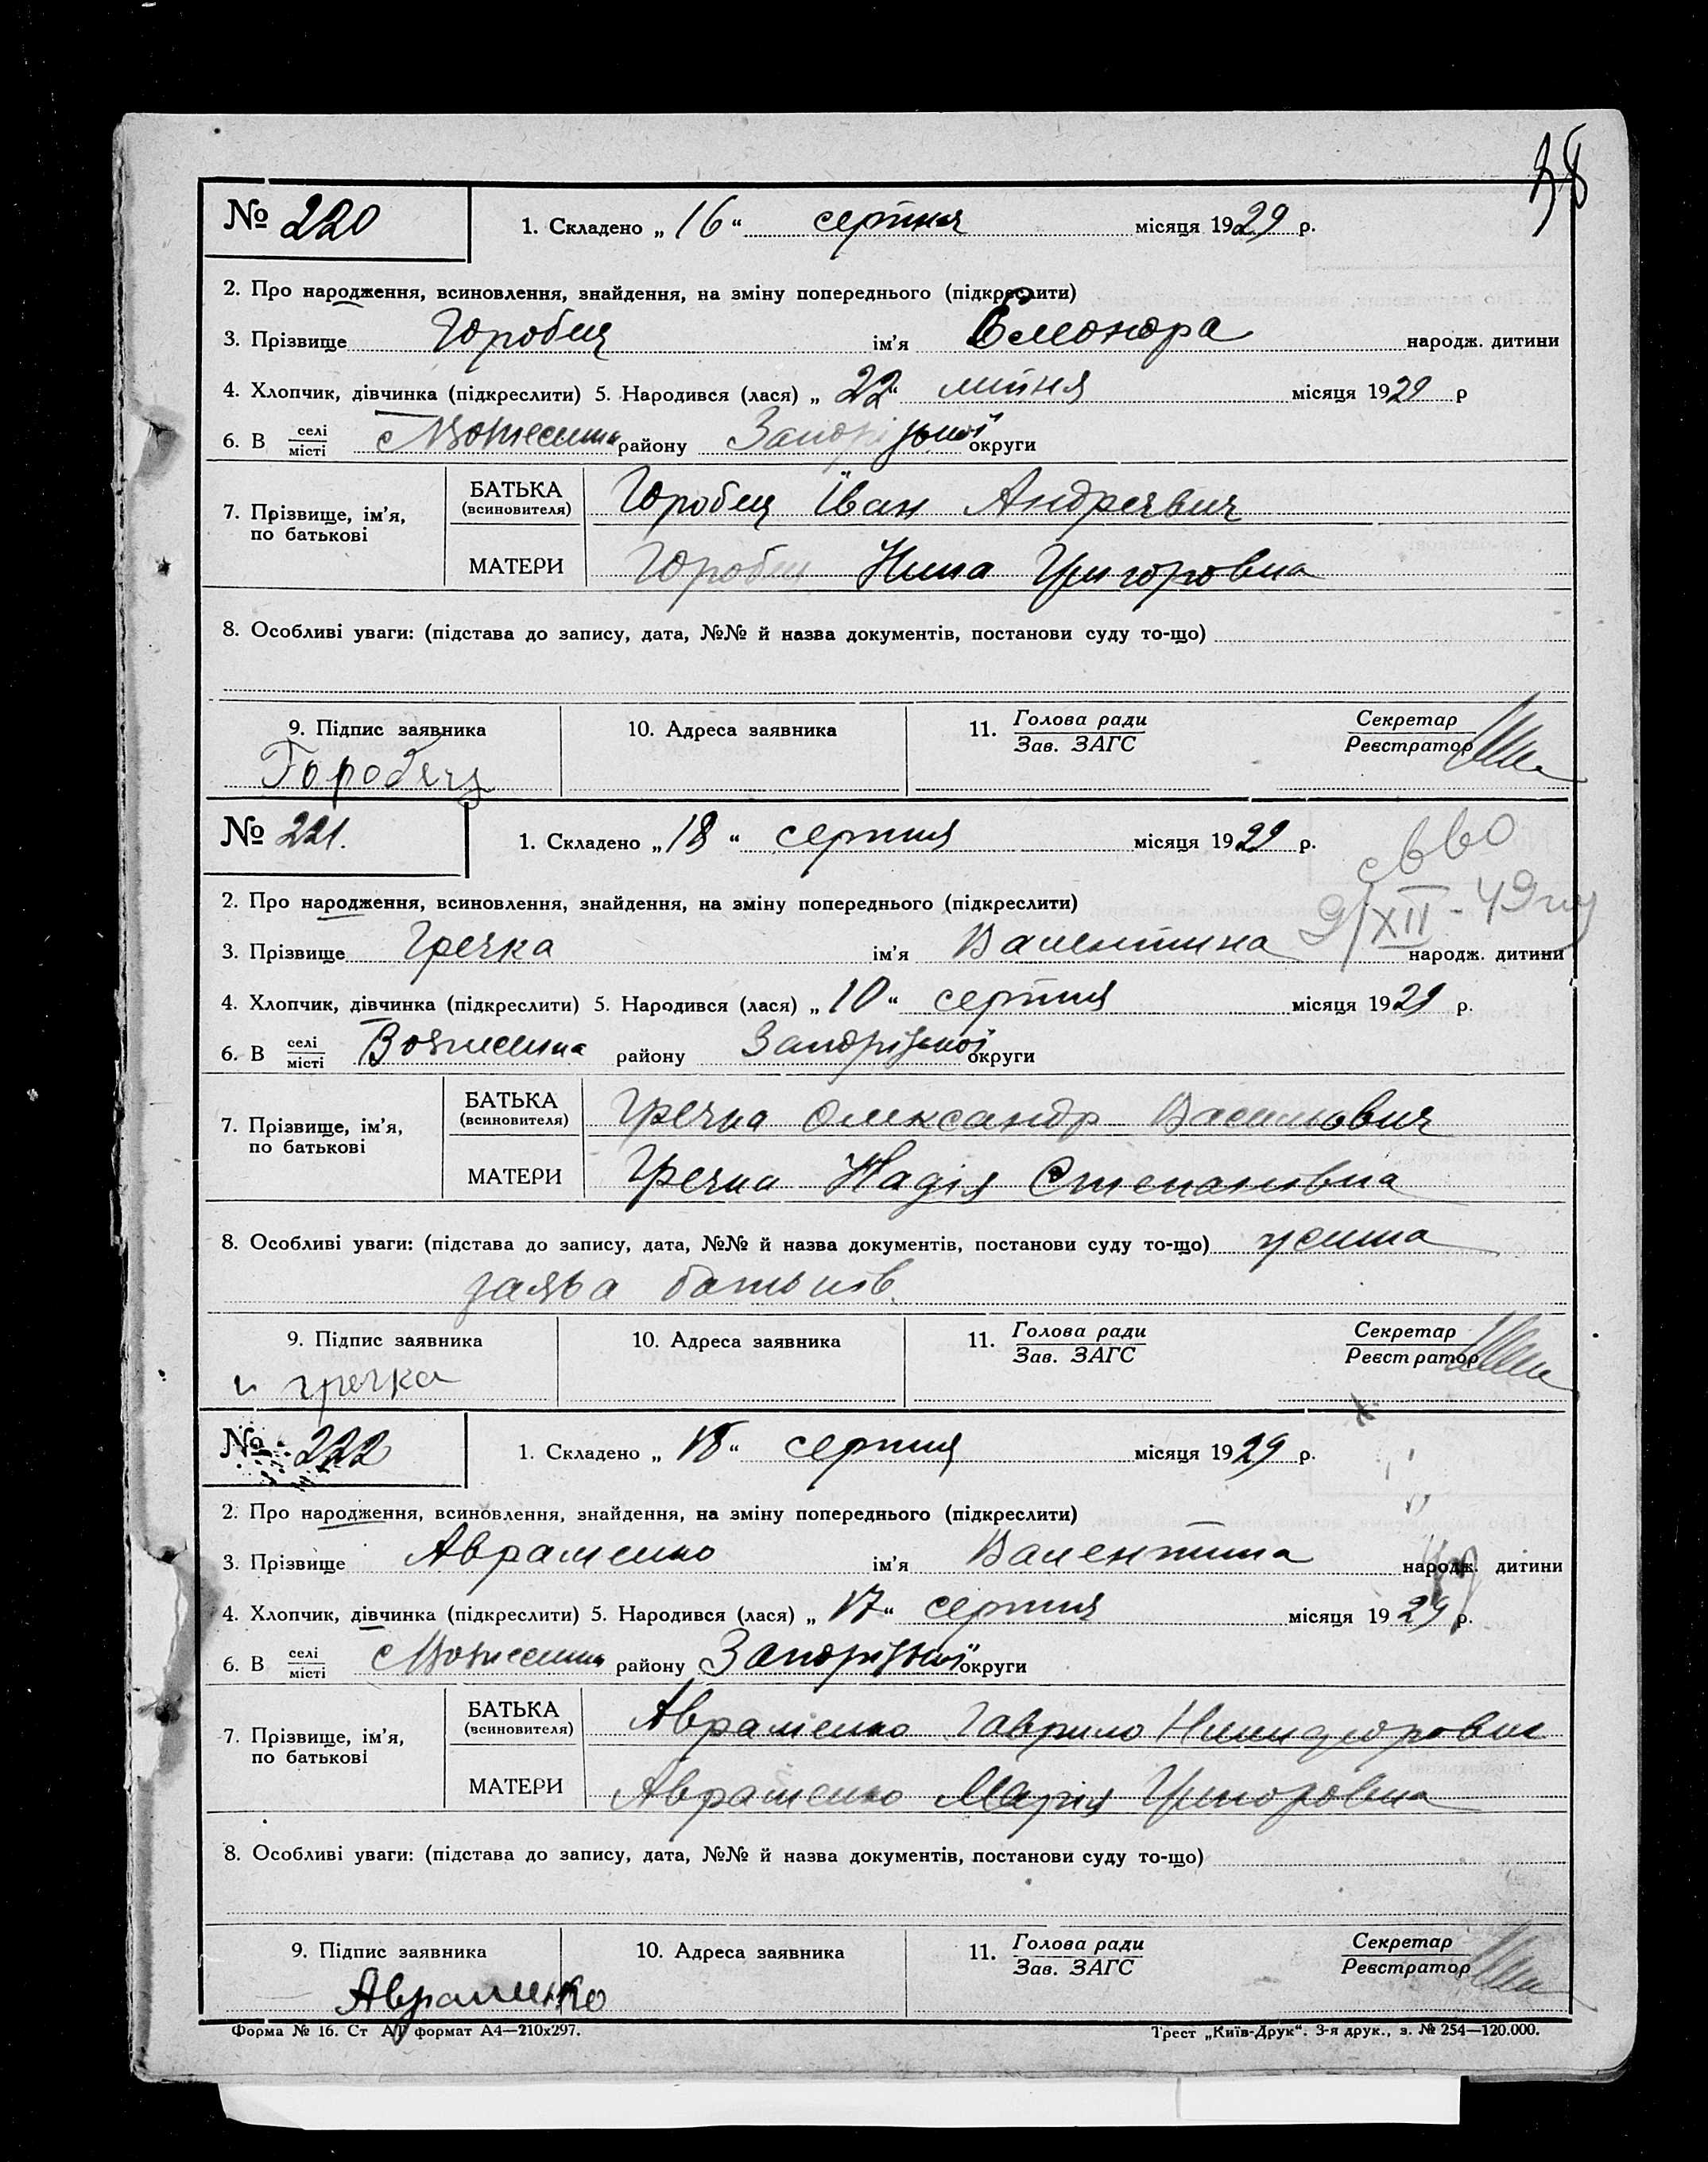 38
№ 220
1. Складено „16“ серпня місяця 1929 р.
2. Про народження, всиновлення, знайдення, на зміну попереднього (підкреслити)
3. Прізвище Горобец ім'я Елеонора народж. дитини
4. Хлопчик, дівчинка (підкреслити) 5. Народився (лася) „22“ липня місяця 1929 р
6. В селі/місті с Вознесенка району Запорізької округи
7. Прізвище, ім'я, по батькові
БАТЬКА (всиновителя) Горобец Іван Андреєвич
МАТЕРИ Горобец Нина Григоровна
8. Особливі уваги: (підстава до запису, дата, №№ й назва документів, постанови суду то-що)
9. Підпис заявника 10. Адреса заявника 11. Голова ради/Зав. ЗАГС Секретар/Реєстратор
Горобец
№ 221.
1. Складено „18“ серпня місяця 1929 р.
9/XII-49
2. Про народження, всиновлення, знайдення, на зміну попереднього (підкреслити)
3. Прізвище Гречка ім'я Валентина народж. дитини
4. Хлопчик, дівчинка (підкреслити) 5. Народився (лася) „10“ серпня місяця 1929 р.
6. В селі/місті Вознесенка району Запорізької округи
7. Прізвище, ім'я, по батькові
БАТЬКА (всиновителя) Гречка Олександр Васильович
МАТЕРИ Гречка Надія Степановна
8. Особливі уваги: (підстава до запису, дата, №№ й назва документів, постанови суду то-що) усна
заява батьків
9. Підпис заявника 10. Адреса заявника 11. Голова ради/Зав. ЗАГС Секретар/Реєстратор
гречка
№ 222
1. Складено „18“ серпня місяця 1929 р.
2. Про народження, всиновлення, знайдення, на зміну попереднього (підкреслити)
3. Прізвище Авраменко ім'я Валентина народж. дитини
4. Хлопчик, дівчинка (підкреслити) 5. Народився (лася) „17“ серпня місяця 1929 р.
6. В селі/місті с Вознесенка району Запорізької округи
7. Прізвище, ім'я, по батькові
БАТЬКА (всиновителя) Авраменко Гаврило
МАТЕРИ Авраменко Марія Григоровна
8. Особливі уваги: (підстава до запису, дата, №№ й назва документів, постанови суду то-що)
9. Підпис заявника 10. Адреса заявника 11. Голова ради/Зав. ЗАГС Секретар/Реєстратор
Авраменко
Форма № 16. Ст формат А4—210х297. Трест „Київ-Друк“. 3-я друк., з. № 254—120.000.